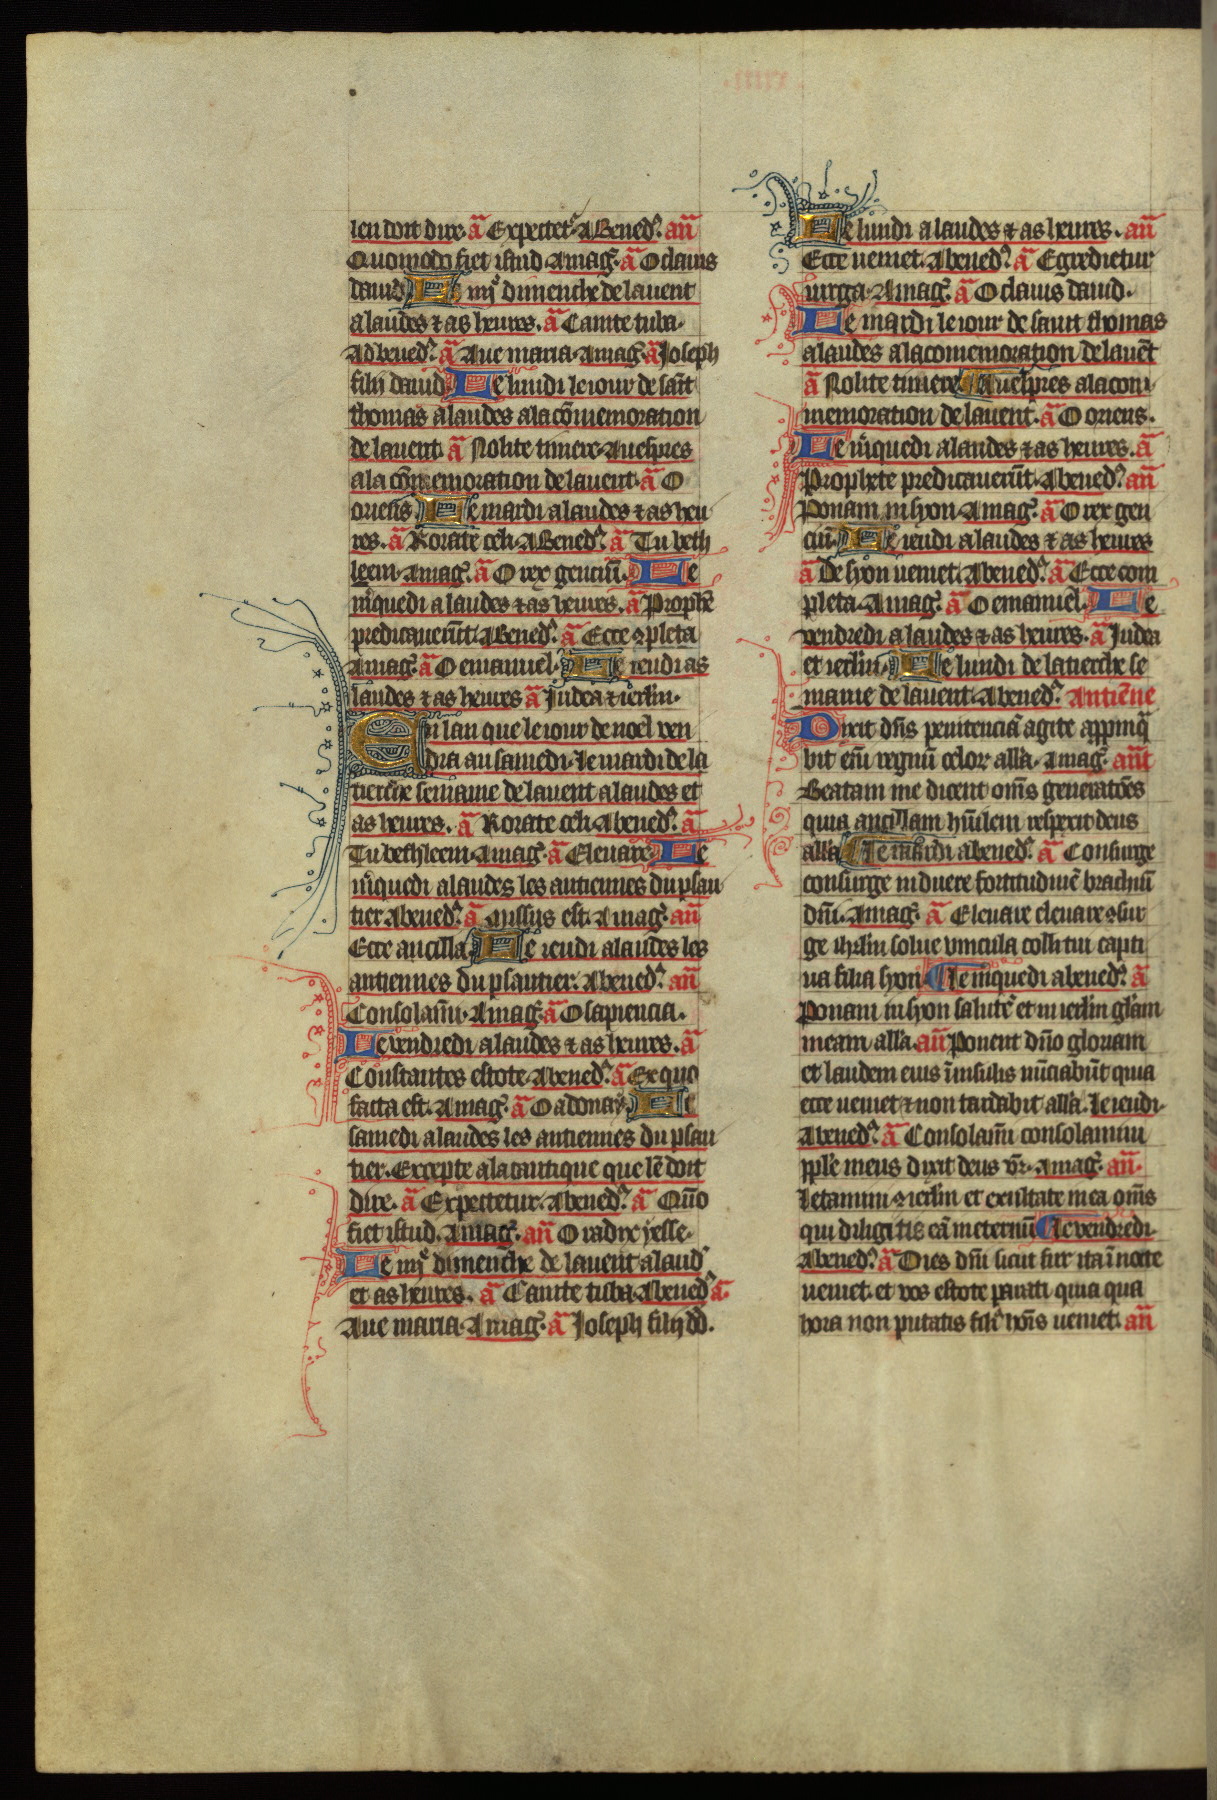 len doit dire. a͞ Expectet᷑. A Bened᷑. an͞
Quomodo fiet istud. A mag᷑. a͞ O clauis
dauid. Le iiijᵉ dimenche de lauent
a laudes ⁊ as heures. a͞ Canite tuba.
Ad bened᷑. a͞ Aue maria. A mag᷑. a͞ Joseph
fili dauid. Le lundi le iour de sai͞t
thomas a laudes a la co͞memoration
de lauent. a͞ Nolite timere. A uespres
a la co͞memoration de lauent. a͞ O
oriens. Le mardi a laudes ⁊ as heu
res. a͞ Rorate celi. A Bened᷑. a͞ Tu beth
leem. A mag᷑. a͞ O rex genciu͞. Le
m͛quedi a laudes ⁊ as heures. a͞ Prophe͞
predicaueru͞t. A Bened᷑. a͞ Ecce ꝯpleta
A mag᷑. a͞ O emanuel. Le ieudi as
laudes ⁊ as heures a͞ Judea ⁊ ierl͞m.
En lan que le iour de noel ven
dra au samedi. Le mardi de la
tierche semaine de lauent a laudes et
as heures. a͞ Rorate celi. A bened᷑. a͞
Tu bethleem. A mag᷑. a͞ Eleuare. Le
m͛quedi a laudes les antiennes du psau
tier. A bened᷑. a͞ Missus est. A mag᷑. an͞
Ecce ancilla. Le ieudi a laudes les
antiennes du psautier. A bened᷑. an͞
Consolami͞. A mag᷑. a͞ O sapiencia.
Le vendredi a laudes ⁊ as heures. a͞
Constantes estote. A bened᷑. a͞ Ex quo
facta est. A mag᷑. a͞ O adonay. Le
samedi a laudes les antiennes du psau
tier. Excepte a la cantique que le͞ doit
dire. a͞ Expectetur. A bened᷑. a͞ Quo͞
fiet istud. A mag᷑. an͞ O radix yesse.
Le iiijᵉ dimenche de lauent a laud᷑
et as heures. a͞ Canite tuba. A bened᷑. a͞.
Aue maria. A mag᷑. a͞ Joseph filij dd.
Le lundi a laudes ⁊ as heures. an͞
Ecce ueniet. A bened᷑. a͞ Egredietur
uirga. A mag᷑. a͞ O clauis dauid.
Le mardi le iour de saint thomas
a laudes a la comemoration de laue͞t
a͞ Nolite timere. A uespres a la com
memoration de lauent. a͞ O oriens.
Le m͛quedi a laudes ⁊ as heures. a͞
Prophete predicaueru͞t. A bened᷑. an͞
Ponam in syon. A mag᷑. a͞ O rex gen
ciu͞. Le ieudi a laudes ⁊ as heures
a͞ De syon ueniet. A bened᷑. a͞ Ecce com
pleta. A mag᷑. a͞ O emanuel. Le
vendredi a laudes ⁊ as heures. a͞ Judea
et ierl͞m. Le lundi de la tierche se
maine de lauent. A bened᷑. Antie͞ne
Dixit dn͞s penitencia͞ agite appinq͞
bit eni͞ regnu͞ celor᷑ all͞a. A mag᷑. ant͞
Beatam me dicent om͞s generato͞es
quia ancillam hu͞ilem respexit deus
all͞a Le mardi a bened᷑. a͞ Consurge
consurge induere fortitudine͞ brachiu͞
dn͞i. A mag᷑. a͞ Eleuare eleuare ꝯsur
ge ihrl͞m solue vincula colli tui capti
ua filia syon. Le m͛quedi a bened᷑. a͞
Ponam in syon salute͞ et in ierl͞m gl͞am
meam all͞a. an͞ Ponent dn͞o gloriam
et laudem eius i͞ insulis nu͞ciabu͞t quia
ecce ueniet ⁊ non tardabit all͞a. Le ieudi.
A bened᷑. a͞ Consolami͞ consolamini
pp͞le meus dixit deus vr͞. A mag᷑. an͞.
Letamini ꝯ ierl͞m et exultate in ea om͞s
qui diligitis ea͞ in eternu͞ Le vendredi
A bened᷑. a͞ Dies dn͞i sicut fur ita i͞ nocte
ueniet. et vos estote parati quia qua
hora non putatis fili͞ ho͞is ueniet. an͞